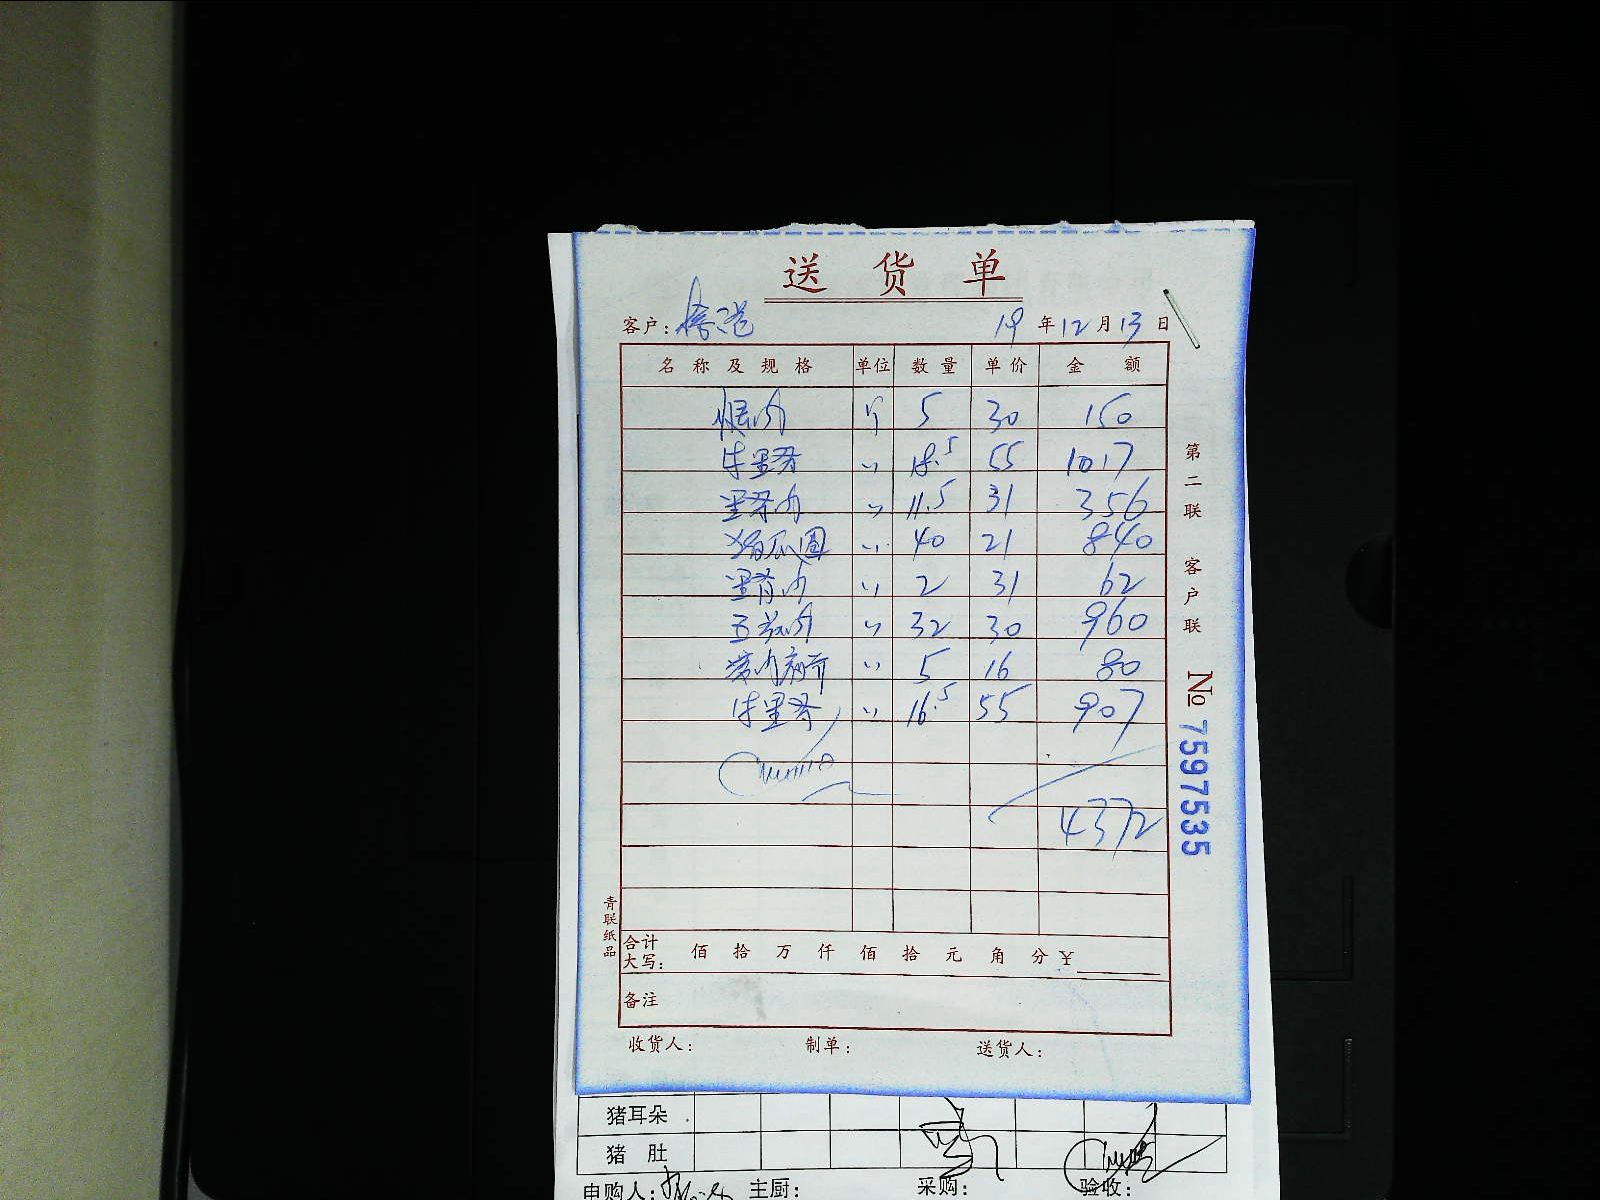 送货单
客户: 19年12月13日
名称及规格 单位 数量 单价 金额
斤 5 30 150
牛里脊 〃 18.5 55 1017
里脊肉 〃 11.5 31 356
〃 40 21 840
里脊肉 〃 2 31 62
五花肉 〃 32 30 960
〃 5 16 80
牛里脊 〃 16.5 55 907
4372
合计大写: 佰 拾 万 仟 佰 拾 元 角 分 ¥
备注
收货人: 制单: 送货人:
第二联 客户联
№ 7597535
青联纸品
猪耳朵
猪肚
申购人: 主厨: 采购: 验收: